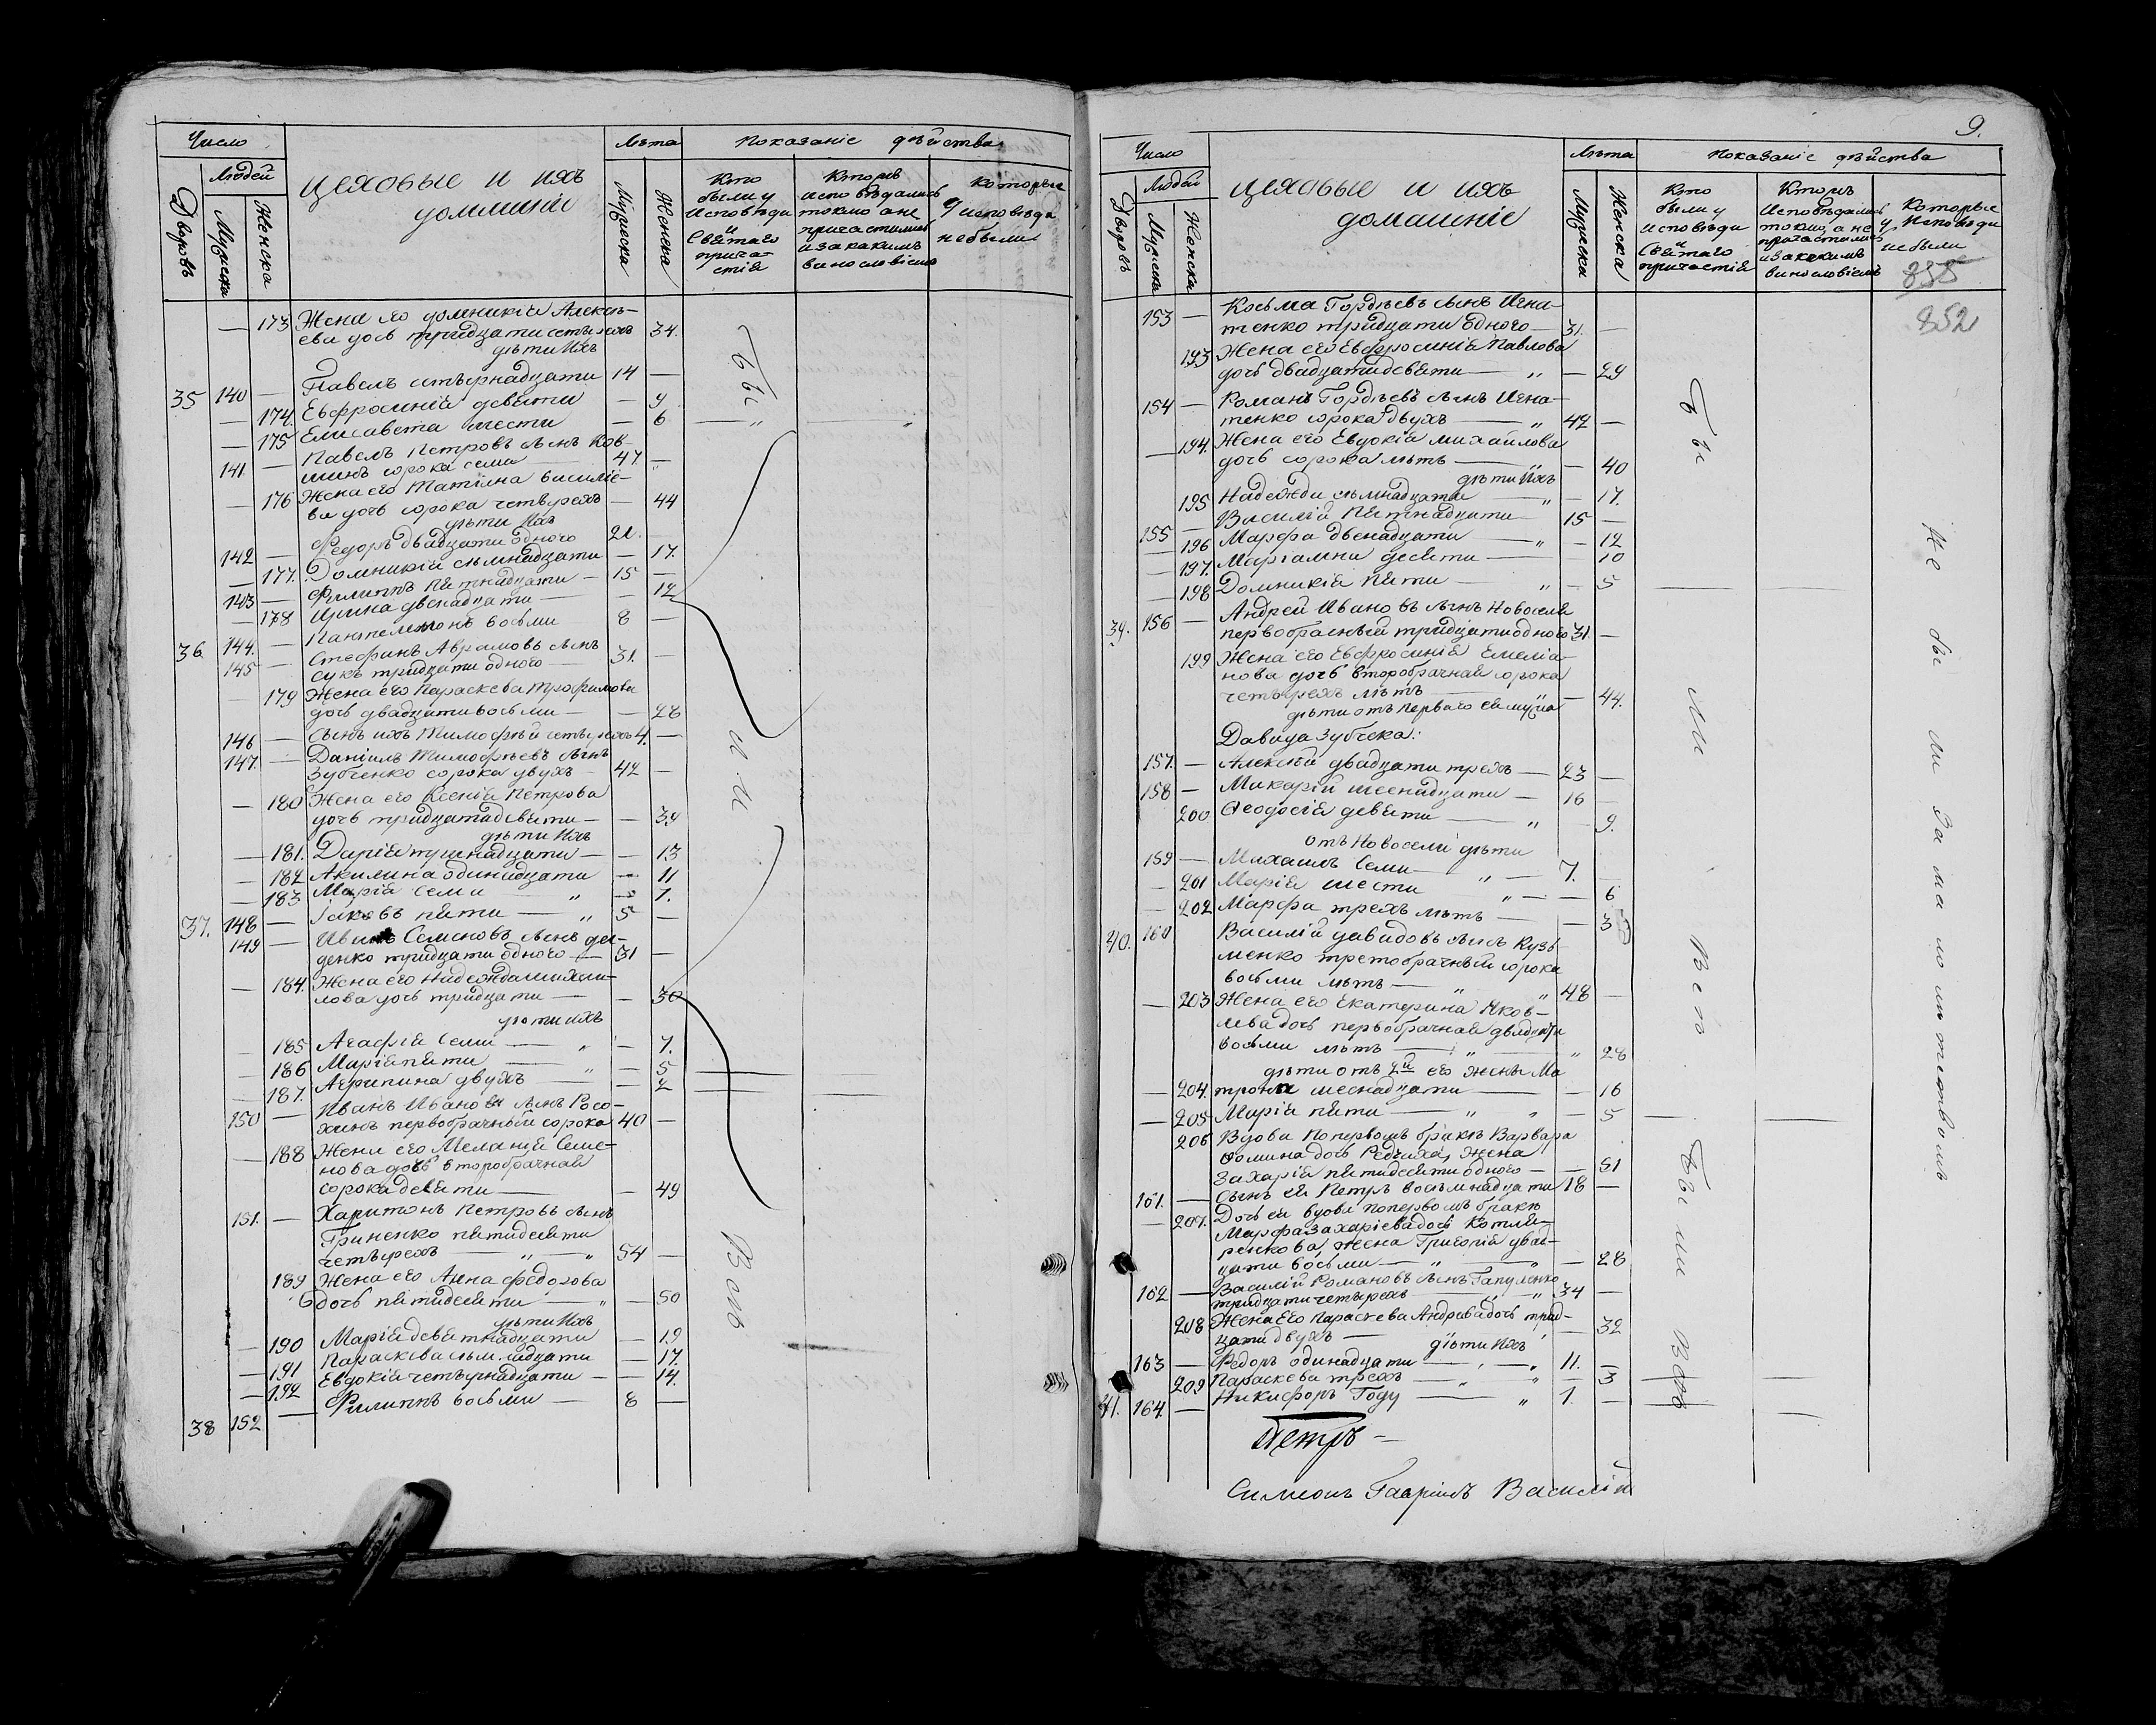 Число
Людей
Дворовъ
Мужеска
Женска
Цеховые и ихъ
домашніе
Лѣта
Мужеска
Женска
Показаніе дѣйства
Кто
были у
исповѣди
и
Святаго
прича-
стія
исповѣдались
токмо а не
причастились
и за какимъ
винословіемъ
которые
у исповѣди
небыли
173 Жена его Домникія Алексѣ-
ева дочь тридцати четырехъ 34.
дѣти ихъ
35 140 — Павелъ четырнадцати 14 —
— 174. Евфросинія девяти — 9
— 175 Елисавета шести — 6
141 — Павелъ Петровъ сынъ Ков-
шинъ сорока семи 47. —
— 176 Жена его Татіана Василіе-
ва дочь сорока четырехъ — 44
дѣти ихъ
142 — Федоръ двадцати одного 21.
— 177. Домникія семнадцати — 17.
143 — Филиппъ пятнадцати — 15 —
— 178 Ирина двенадцати — — 12
36 144. — Пантелемонъ восьми 8 —
145 — Стефанъ Аврамовъ сынъ
сукъ тридцати одного — 31. —
179 Жена его Параскева Трофимова
дочь двадцати восьми — — 28
146 — Сынъ ихъ Тимофѣй четырехъ 4. —
147. — Даніилъ Тимофѣевъ сынъ
Зубченко сорока двухъ — 42 —
— 180 Жена его Ксенія Петрова
дочь тридцатидевяти — — 39
дѣти ихъ
— 181. Дарія тринадцати — — 13
— 182 Акилина одинадцати — 11
— 183 Марія семи — „ — 7.
37. 148 — Іаковъ пяти — „ 5 —
149 — Иванъ Семеновъ сынъ
денко тридцати одного — 31 —
— 184. Жена его Надежда Михаи-
лова дочь тридцати — — 30
дѣти ихъ
— 185 Агафія семи — „ — 7.
— 186 Марія пяти — „ — 5
— 187. Агрипина двухъ — — 2
150 — Иванъ Ивановъ сынъ Росо-
хинъ первобрачный сорока 40 —
— 188 Жена его Меланія Семе-
нова дочь второбрачная
сорока девяти — — 49
151. — Харитонъ Петровъ сынъ
Гриненко пятидесяти
четырехъ — „ — „ 54 —
189 Жена его Анна Федорова
дочь пятидесяти — „ — 50
дѣти ихъ
— 190 Марія девятнадцати — 19
— 191 Параскева семнадцати — 17.
— 192 Евдокія четырнадцати — — 14.
38 152 — Филиппъ восьми — 8 —
Бы
ли
Всѣ
9.
Число
Людей
Дворовъ
Женска
Цеховые и ихъ
домашніе
Лѣта
Мужеска
Женска
Показаніе дѣйства
Кто
были у
исповѣди
и
Святаго
причастія
Исповѣдались
токмо, а не
причастились
и за какимъ
винословіемъ
Которые
у исповѣди
не были
835
852
153 — Косьма Гордѣевъ сынъ Игна-
тенко тридцати одного — 31. —
193 Жена его Евфросинія Павлова
дочь двадцатидевяти — „ — 29
154 — Романъ Гордѣевъ сынъ Игна-
тенко сорока двухъ — „ 42 —
— 194. Жена его Евдокія Михайлова
дочь сорока лѣтъ — „ — 40
дѣти ихъ
195 Надежда семнадцати — „ — 17.
155 — Василій пятнадцати — 15 —
— 196 Марфа двенадцати — „ — 12
— 197. Маріамна десяти — — 10
— 198 Домникія пяти — „ — 5
39. 156 — Андрей Ивановъ сынъ Новоселя
первобрачный тридцати одного 31. —
199 Жена его Евфросинія Емеліа-
нова дочь второбрачная сорока
четырехъ лѣтъ — „ — 44.
дѣти отъ перваго ея мужа
Давида Зубчека:
157. — Алексѣй двадцати трехъ — 23 —
158 — Макарій шеснадцати — 16 —
200 Ѳеодосія девяти — „ — 9.
отъ Новосели дѣти
159 — Михаилъ семи — „ — 7. —
— 201 Марія шести „ — — 6
— 202 Марфа трехъ лѣтъ — — 3
40. 160 Василій Давидовъ сынъ Кузь-
менко третобрачный сорока
восьми лѣтъ — „ „ 48 —
— 203 Жена его Екатерина Яков-
лева дочь первобрачная двадцати
восьми лѣтъ — „ — „ 28
дѣти отъ 2й его жены Ма
— 204. трона шеснадцати — — 16
— 205 Марія пяти — „ „ — 5
206 Вдова по первомъ бракѣ Варвара
Ѳомина дочь жена
Захарія пятидесяти одного — — 51
161. — Сынъ ея Петръ восьмнадцати 18 —
— 207. Дочь ея вдова по первомъ бракѣ
Марфа Захаріева дочь Котля-
ренкова, жена Григорія двад-
цати восьми — „ — „ — 28
162 — Василій Романовъ сынъ Гапуленко
тридцати четырехъ — „ — „ 34 —
208 Жена его Параскева Андреева дочь трид-
цати двухъ — — 32
дѣти ихъ
163 — Федоръ одинадцати — „ — „ 11. —
209 Параскева трехъ — „ — „ — 3
41. 164. — Никифоръ году — „ 1. —
Бы
ли
Всѣ.
Были
Всѣ
Не бы ли за малолѣтствомъ
Петръ —
Симеонъ Гавріилъ Василій